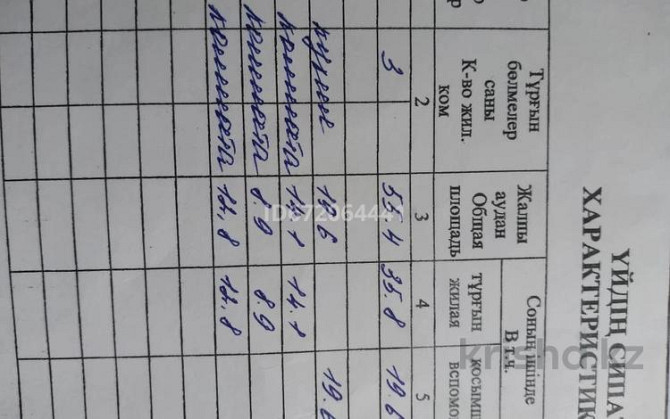 ҮЙДІҢ СИПА
ХАРАКТЕРИСТИК
Тұрғын
бөлмелер
саны
К-во жил.
ком
Жалпы
аудан
Общая
площадь
Соның ішінде
В т.ч.
тұрғын
жилая
қосымш
вспомо
2 3 4 5
3 55.4 35.8 19.6
кухня 19.6 19.6
комната 14.1 14.1
комната 8.9 8.9
комната 12.8 12.8
krisha.kz